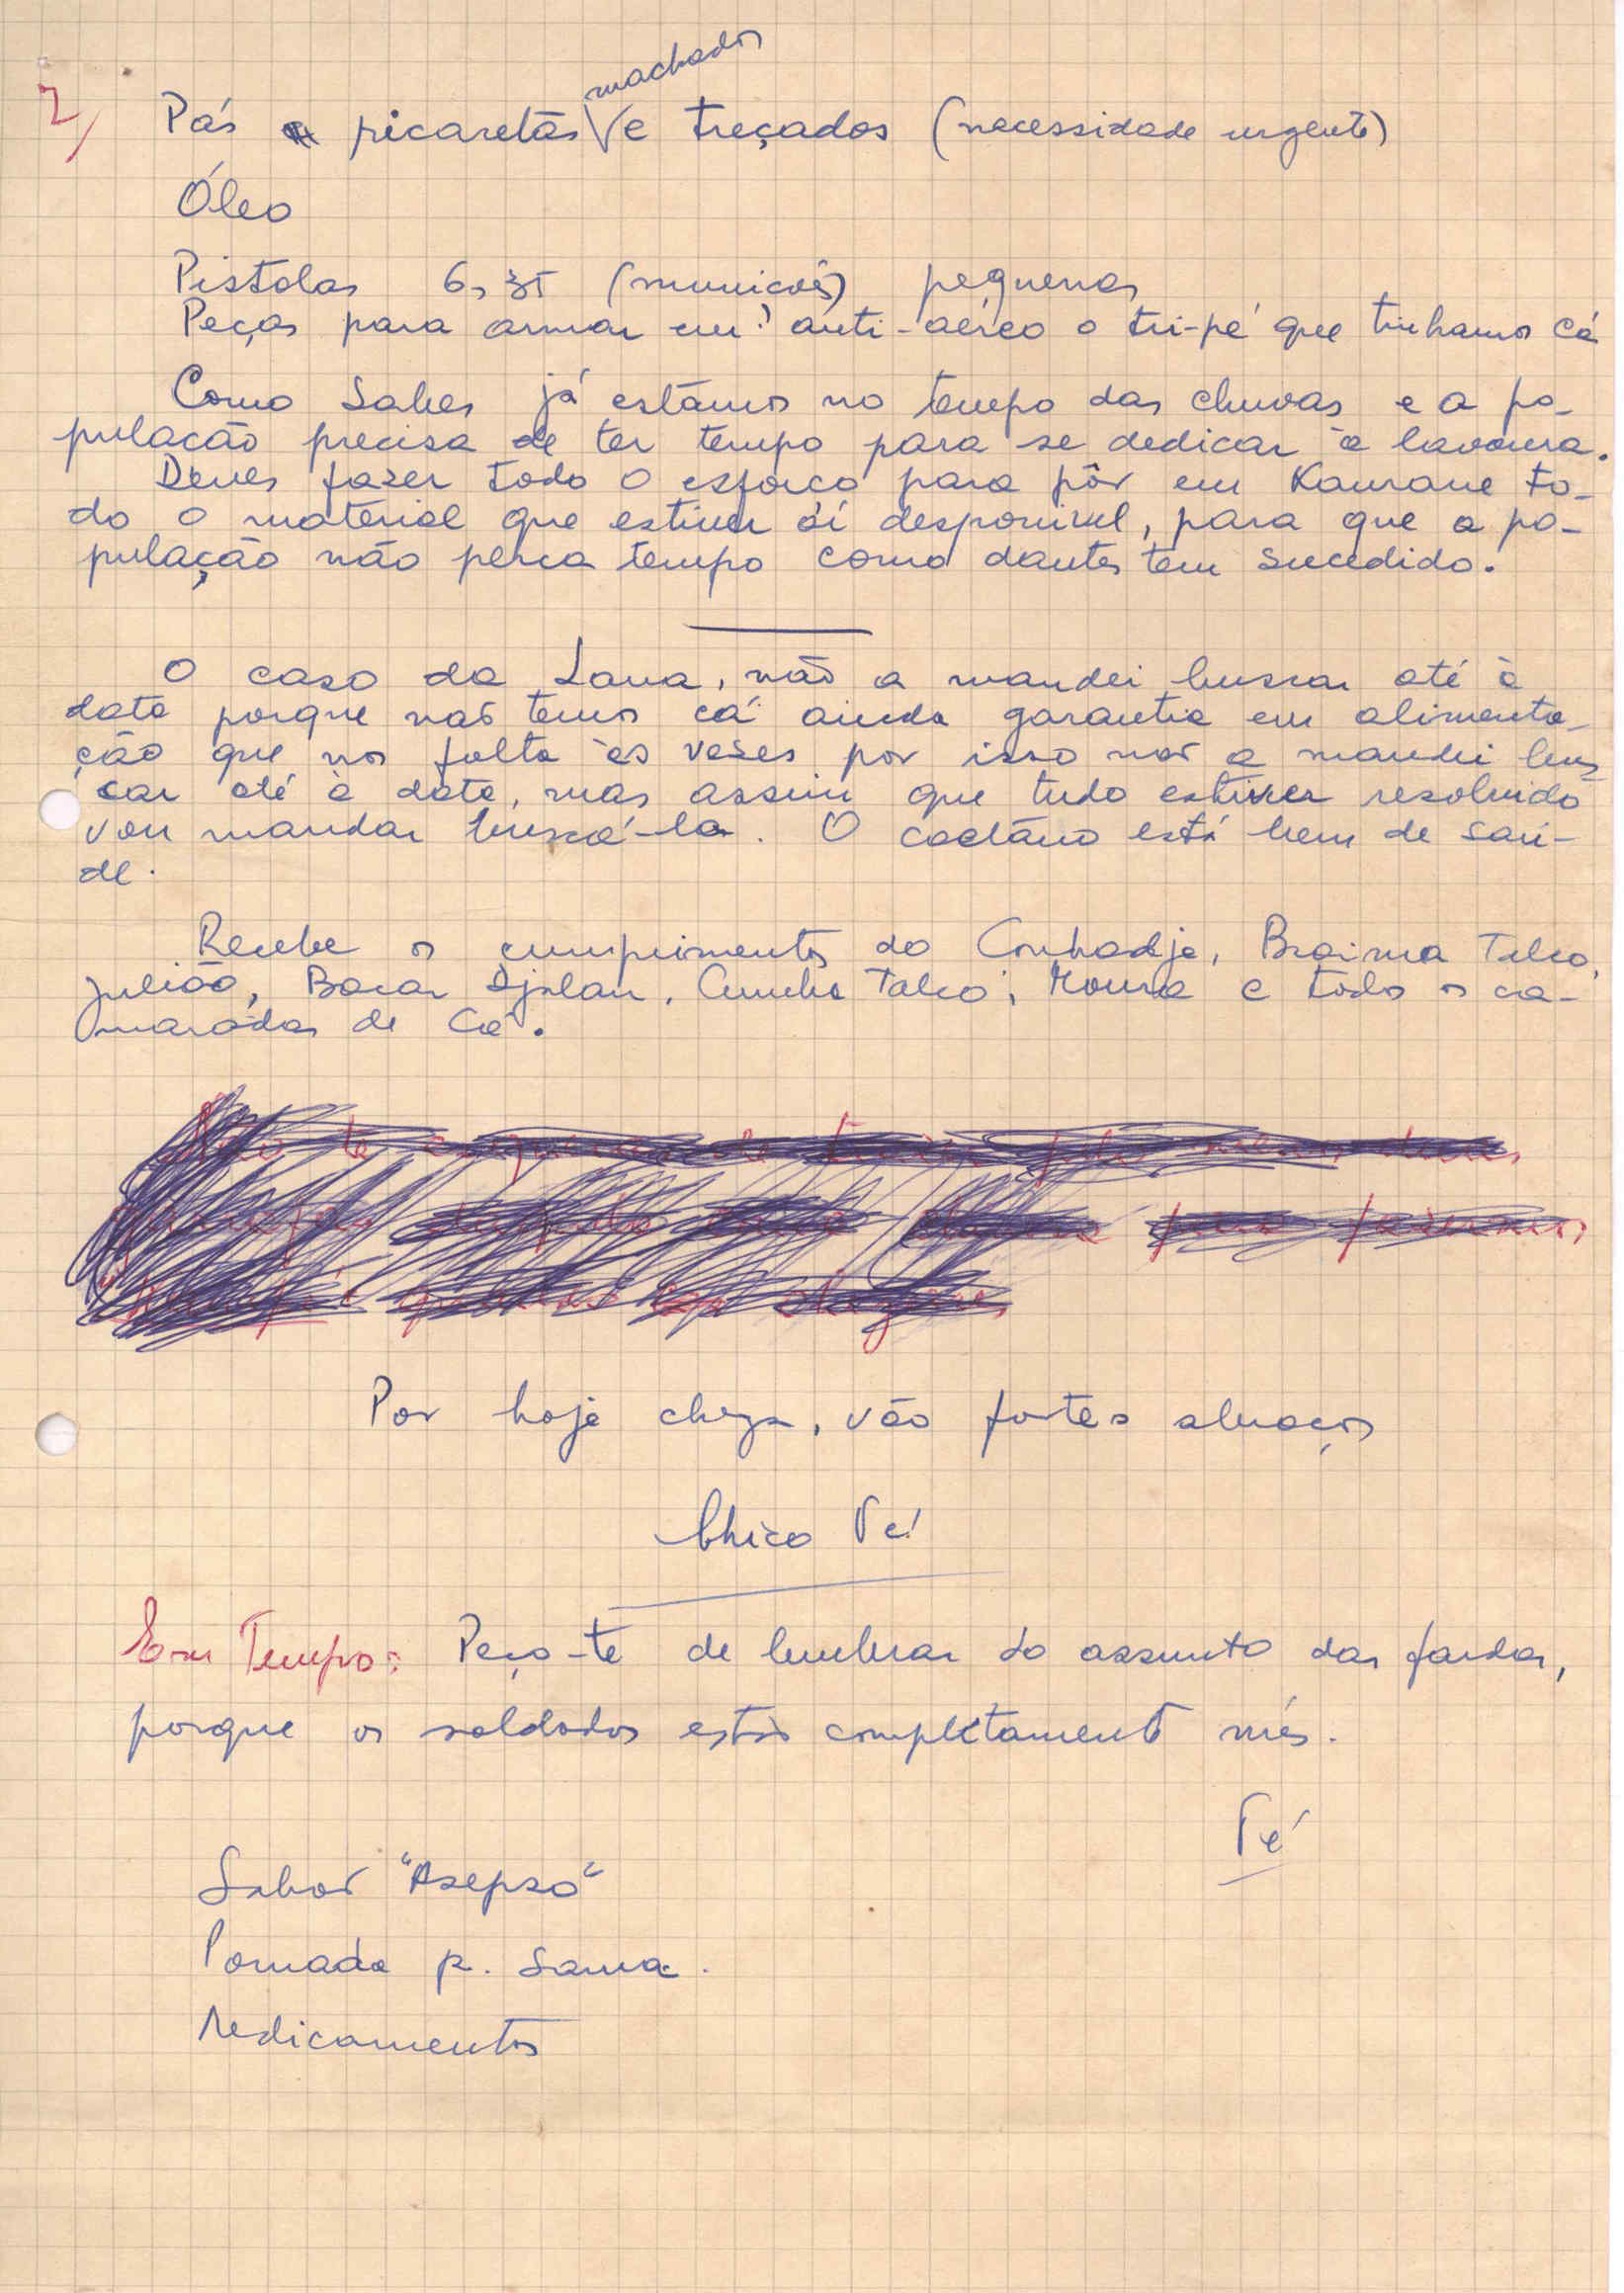 2/
machados
Pás picaretas e treçados (necessidade urgente)
Óleo
Pistolas 6,35 (munições) pequenas
Peças para armar em anti-aéreo o tri-pé que tinhamos cá
Como sabes já estâmos no tempo das chuvas e a po-
pulacão precisa de ter tempo para se dedicar à lavoura.
Deves fazer todo o esforço para pôr em Kanrane to-
do o material que estiver aí desponivel, para que a po-
pulação não perca tempo como dantes tem sucedido.
O caso da Lana, não a mandei buscar até à
data porque nao temos cá ainda garantia em alimenta-
ção que nos falta às vezes por isso não a mandei bus
car até à data, mas assim que tudo estiver resolvido
vou mandar buscá-la. O caetâno está bem de saú-
de.
Recebe os cumprimentos do Conhadje, Braima Talco,
Julião, Bacar Djalau, Cumba Talco, Moura e todos os ca-
maradas de Cá.
Não te esqueças de trazer pelo menos duas
para fazermos
Por hoje chega, vão fortes abraços
Chico Té
Em Tempo: Peço-te de lembrar do assunto das fardas,
porque os soldados estão completamente nús.
Té
Sabão "Asepso"
Pomada p. Sarna.
Medicamentos